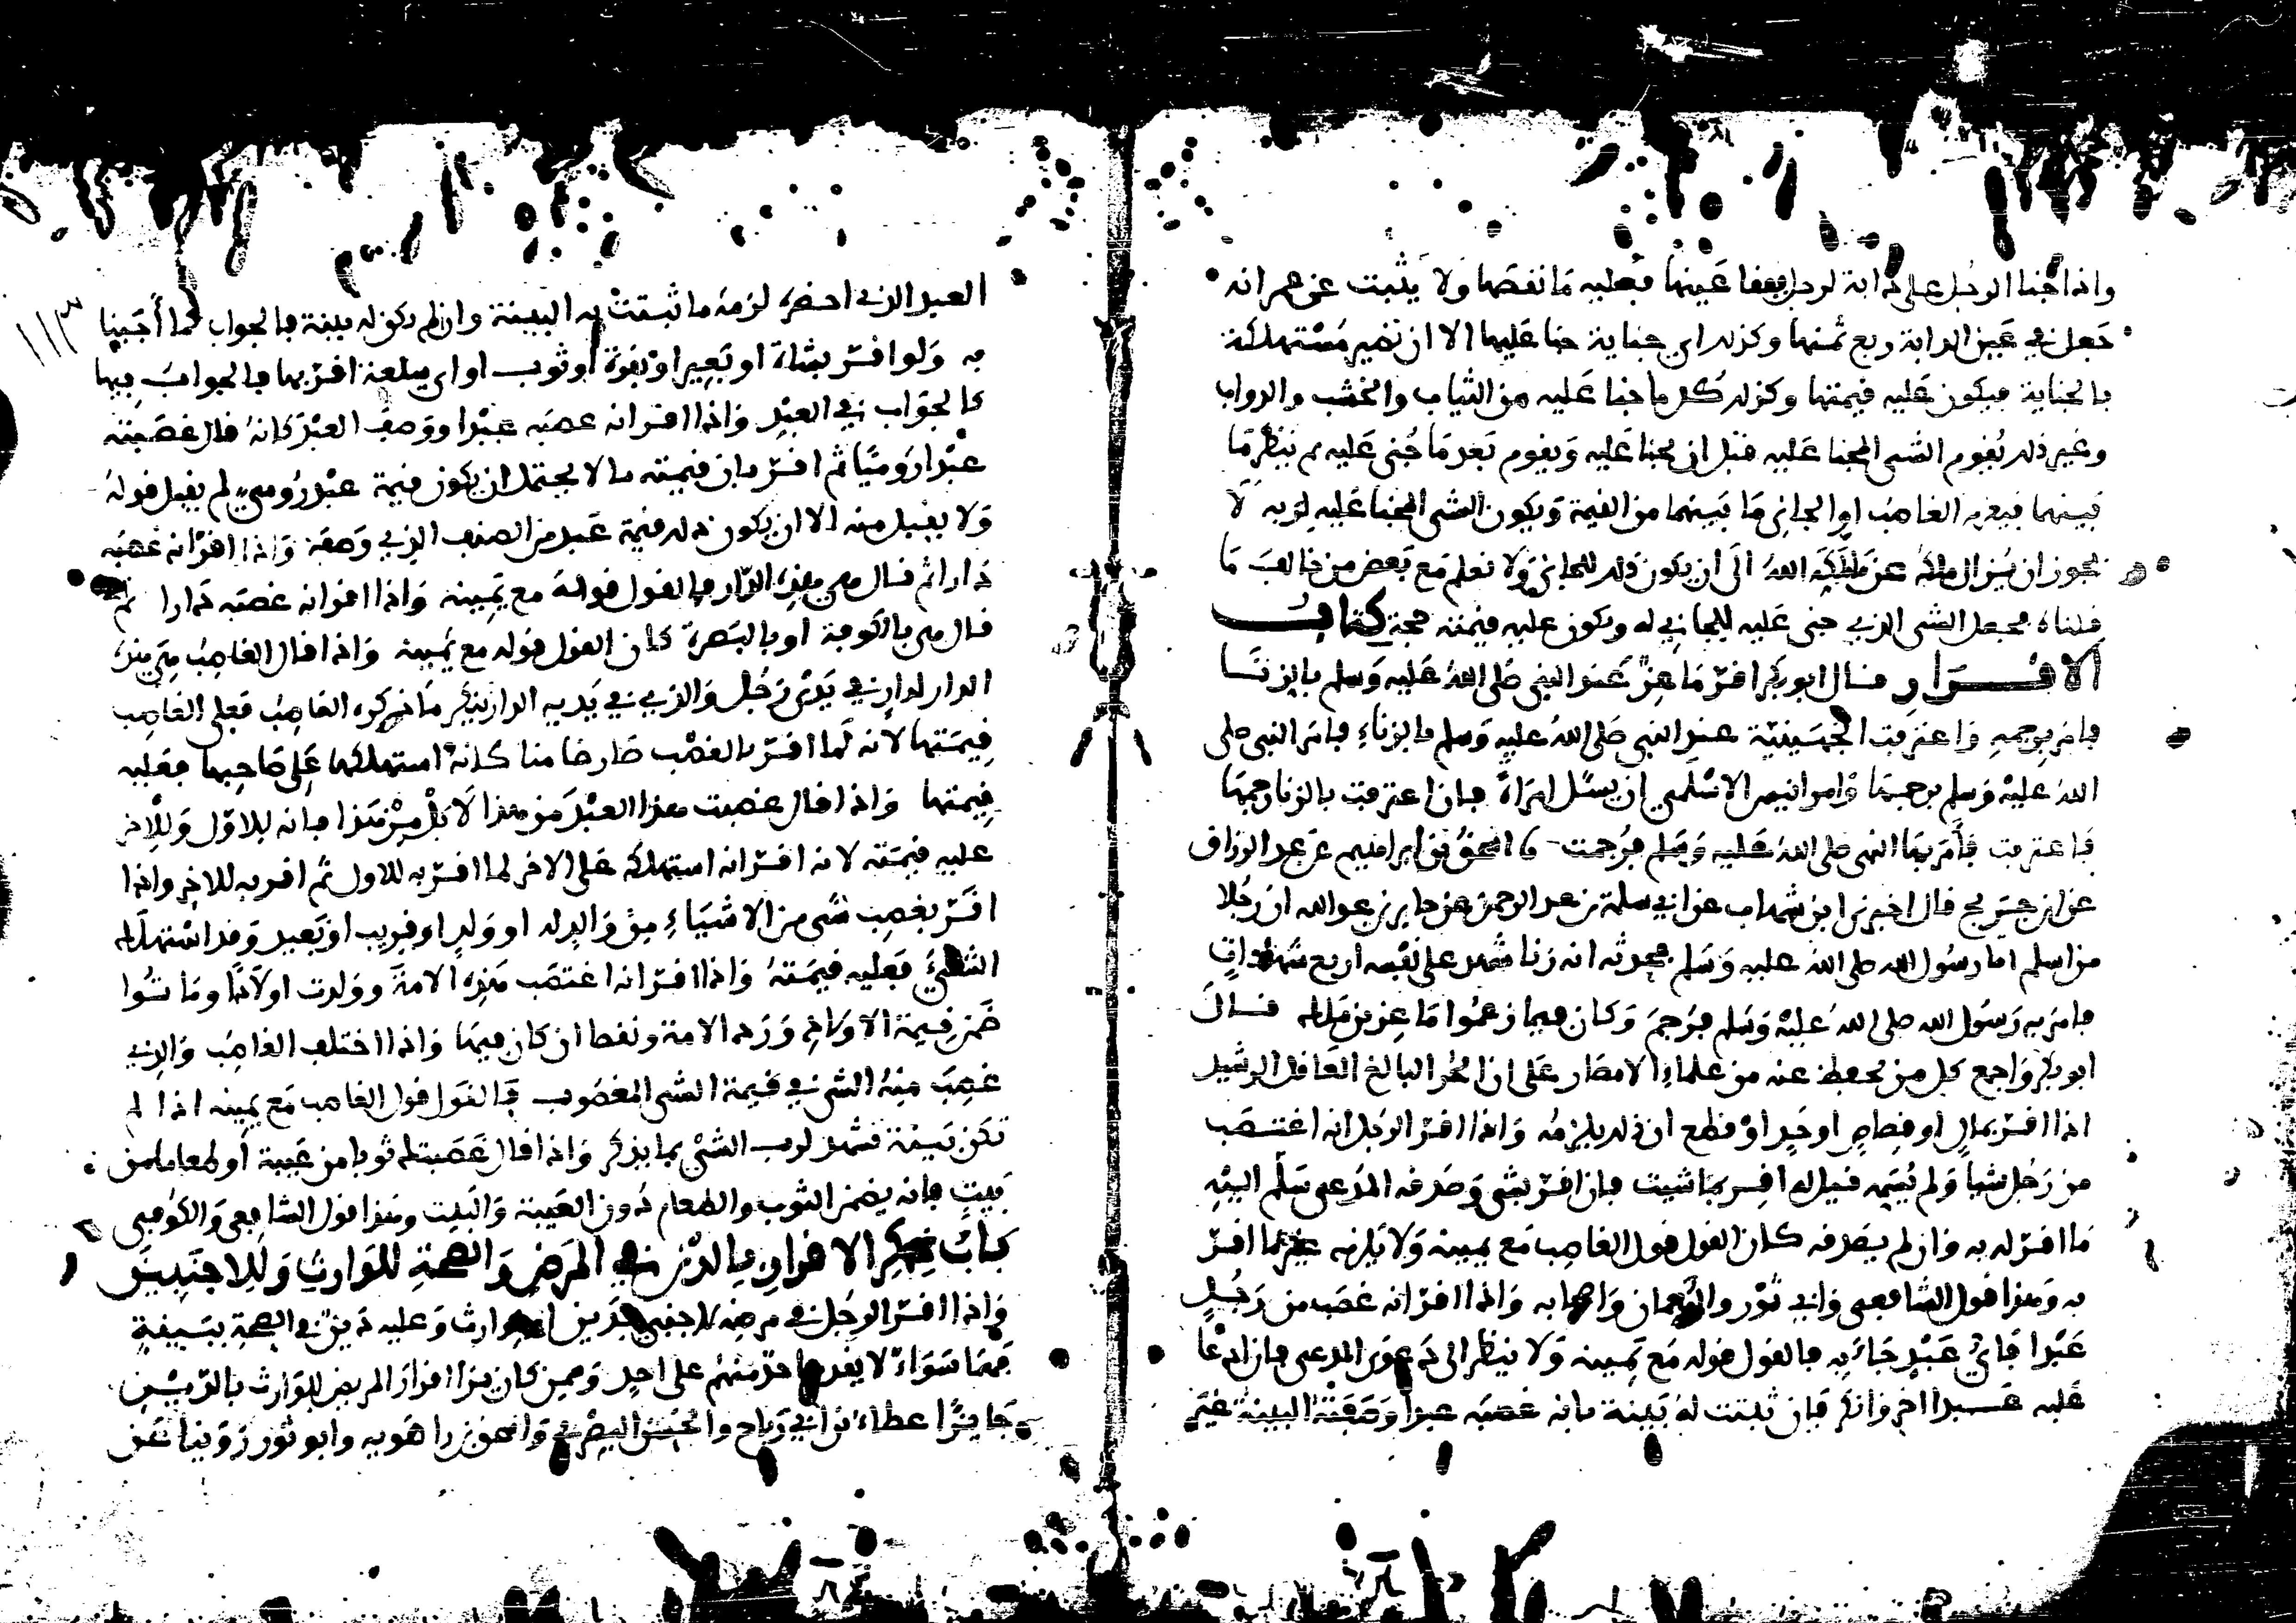 واذا جنا الرجل على دابة لرجل ففقا عينها فعليه ما نقصها ولا يثبت عن عمر انه
جعل في عين الدابة ربع ثمنها وكذلك اي جناية جنا عليها الا ان تصير مستهلكة
بالجناية فيكون عليه قيمتها وكذلك كل ما جنا عليه من الثياب والخشب والدواب
وغير ذلك يقوم الشي المجنا عليه قبل ان يجنا عليه ويقوم بعد ما جنى عليه ثم ينظر ما
بينهما فيغرم الغاصب او الجاني ما بينهما من القيمة ويكون الشي المجنا عليه لربه لا
يجوز ان يزال ملك من ملكه الله الى ان يكون ذلك للجاني ولا نعلم مع بعض من خالف ما
قلناه فجعل الشي الذي جنى عليه للجاني له ويكون عليه قيمته حجة كتاب
الاقرار قال ابو بكر اقر ماعز عند النبي صلى الله عليه وسلم بالزنا
فامر برجمه واعترفت الجهينية عند النبي صلى الله عليه وسلم بالزناء فامر النبي صلى
الله عليه وسلم برجمها وامر انيس الاسلمي ان يسل امراة فان اعترفت بالزنا رجمها
فاعترفت فامر بها النبي صلى الله عليه وسلم فرجمت اسحق بن ابراهيم عن عبد الرزاق
عن ابن جريج قال اخبرني ابن شهاب عن ابي سلمة بن عبد الرحمن عن جابر بن عبد الله ان رجلا
من اسلم اتا رسول الله صلى الله عليه وسلم فحدثه انه زنا شهد على نفسه اربع شهادات
فامر به رسول الله صلى الله عليه وسلم فرجم وكان فيما زعموا ماعز بن ملك قال
ابو بكر واجمع كل من نحفظ عنه من علماء الامصار على ان الحر البالغ العاقل الرشيد
اذا اقر بمال او قصاص او حد او قطع ان ذلك يلزمه واذا اقر الرجل انه اغتصب
من رجل شيا ولم يسمه قيل له اقر بما شيت فان اقر بشي وصدقه المدعى سلم اليه
ما اقر له به وان لم يصدقه كان القول قول الغاصب مع يمينه ولا يلزمه غير ما اقر
به وهذا قول الشافعي وابي ثور والنعمان واصحابه واذا اقر انه غصب من رجل
عبدا فاي عبد جاء به فالقول قوله مع يمينه ولا ينظر الى دعوى المدعي فان ادعا
عليه عبدا اخر وانكر فان ثبتت له بينة بانه غصبه عبدا وصفته البينة غير
العبد الذي احضره لزمه ما ثبتت به البينة وان لم يكن له بينة فالجواب كما اجبنا
به ولو اقر بشاة او بعير او بقرة او ثوب او اي سلعة اقر بها فالجواب فيها
كالجواب في العبد واذا اقر انه غصبه عبدا ووصف العبد كانه قال غصبته
عبدا روميا ثم اقر بان قيمته ما لا يحتمل ان يكون قيمة عبد رومي لم يقبل قوله
ولا يقبل منه الا ان يكون ذلك قيمة عبد من الصنف الذي وصفه واذا اقر انه غصبه
دارا ثم قال هي هذه الدار فالقول قوله مع يمينه واذا اقر انه غصبه دارا ثم
قال هي بالكوفة او بالبصرة كان القول قوله مع يمينه واذا قال الغاصب هي هذه
الدار لدار في يدي رجل والذي في يديه الدار ينكر ما ذكره الغاصب فعلى الغاصب
قيمتها لانه لما اقر بالغصب صار ضامنا كانه استهلكها على صاحبها فعليه
قيمتها واذا قال غصبت هذا العبد من هذا لا بل من هذا فانه للاول وللاخر
عليه قيمته لانه اقر انه استهلكه على الاخر لما اقر به للاول ثم اقر به للاخر واذا
اقر بغصب شي من الاشياء من والد له او ولد او قريب او بعيد وقد استهلك
الشي فعليه قيمته واذا اقر انه اغتصب هذه الامة وولدت اولادا وماتوا
ضمن قيمة الاولاد ورد الامة ونقصا ان كان فيها واذا اختلف الغاصب والذي
غصب منه الشي في قيمة الشي المغصوب فالقول قول الغاصب مع يمينه اذا لم
تكن بينة تشهد لرب الشي بما يذكر واذا قال غصبتك ثوبا من عيبة او طعاما من
بيت فانه يضمن الثوب والطعام دون العيبة والبيت وهذا قول الشافعي والكوفي
باب ذكر الاقرار بالدين في المرض والصحة للوارث وللاجنبيين
واذا اقر الرجل في مرضه لاجنبي بدين او وارث وعليه دين في الصحة ببينة
فهما سواء لا يقدم احد منهم على احد وممن كان يرا اقرار المريض للوارث بالدين
جايزا عطاء بن ابي رباح والحسن البصري واسحق بن راهويه وابو ثور روينا عن
١١٣